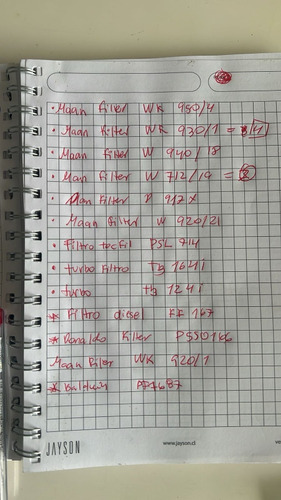 • Maan Filter WK 950/4
• Maan Filter WK 930/1 = 4
• Maan Filter W 940/18
• Man Filter W 712/19 = 2
• Man Filter P 917x
• Maan Filter W 920/21
• Filtro tecfil PSL 714
• turbo Filtro Tg 164 i
• turbo tg 124 i
* Filtro diesel FF 167
* Donaldo Filter P550166
Maan Filter WK 920/1
* Baldwin 7687
JAYSON
www.jayson.cl